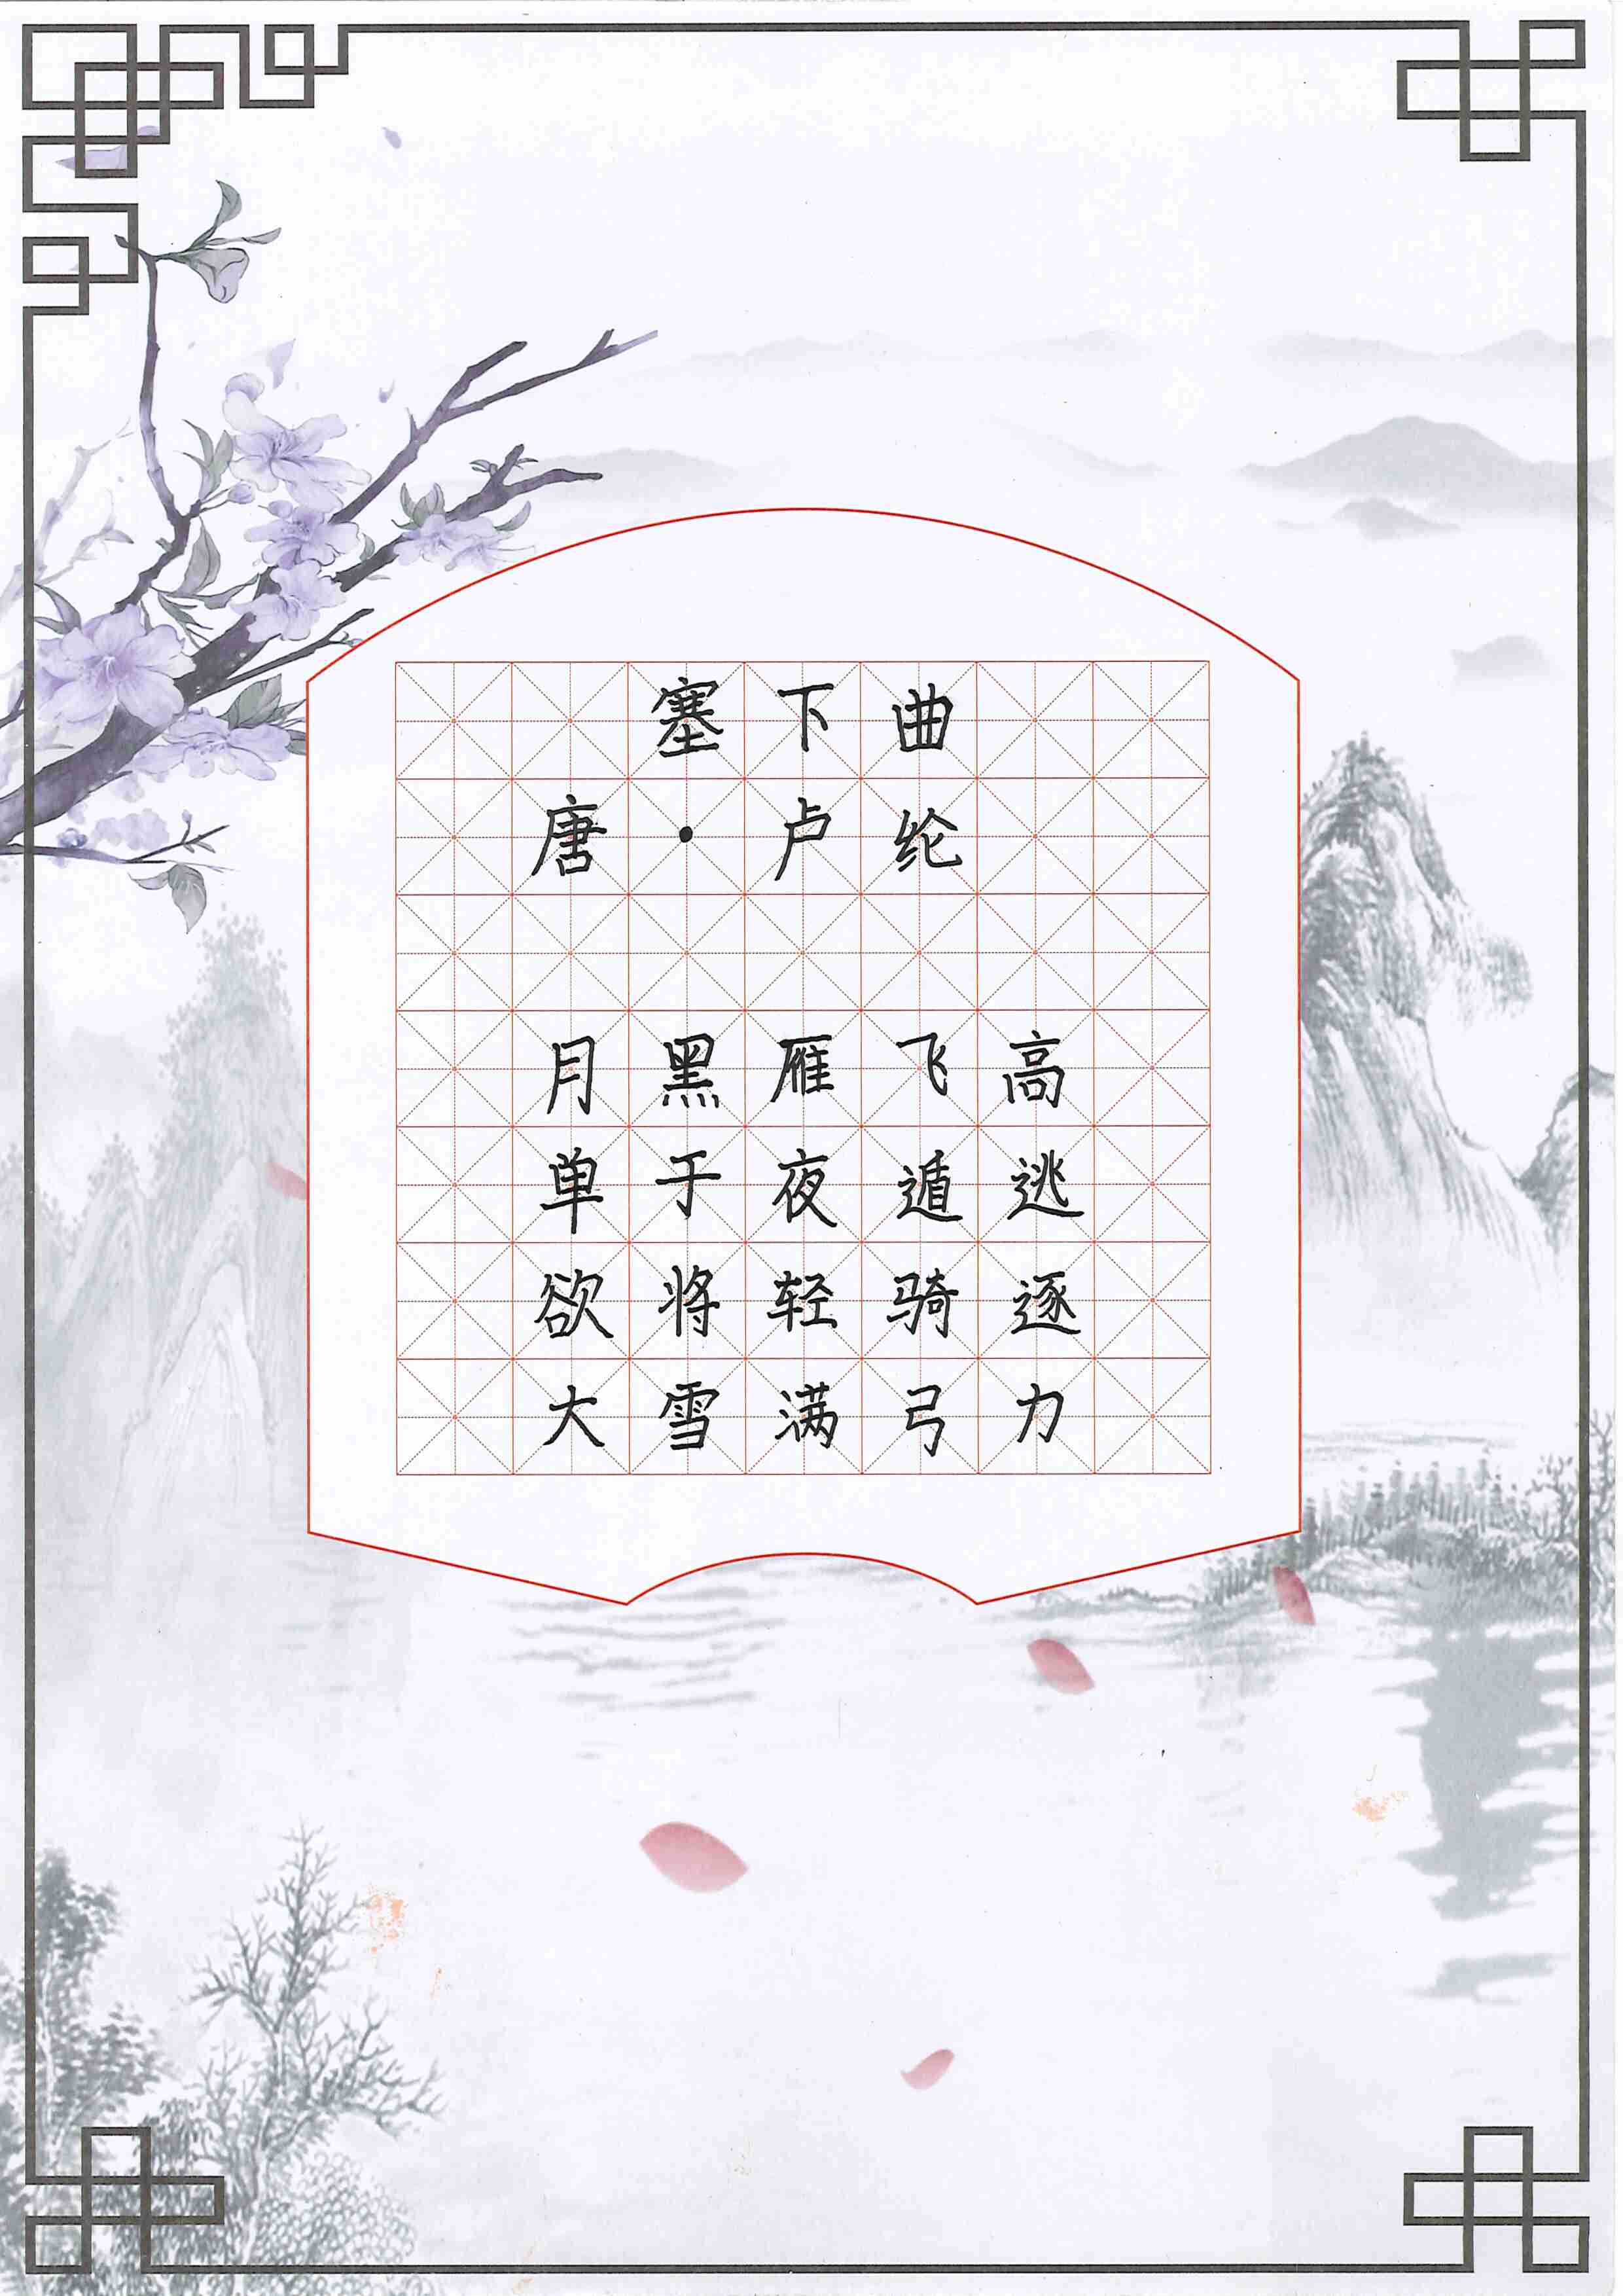 塞下曲
唐·卢纶
月黑雁飞高
单于夜遁逃
欲将轻骑逐
大雪满弓力